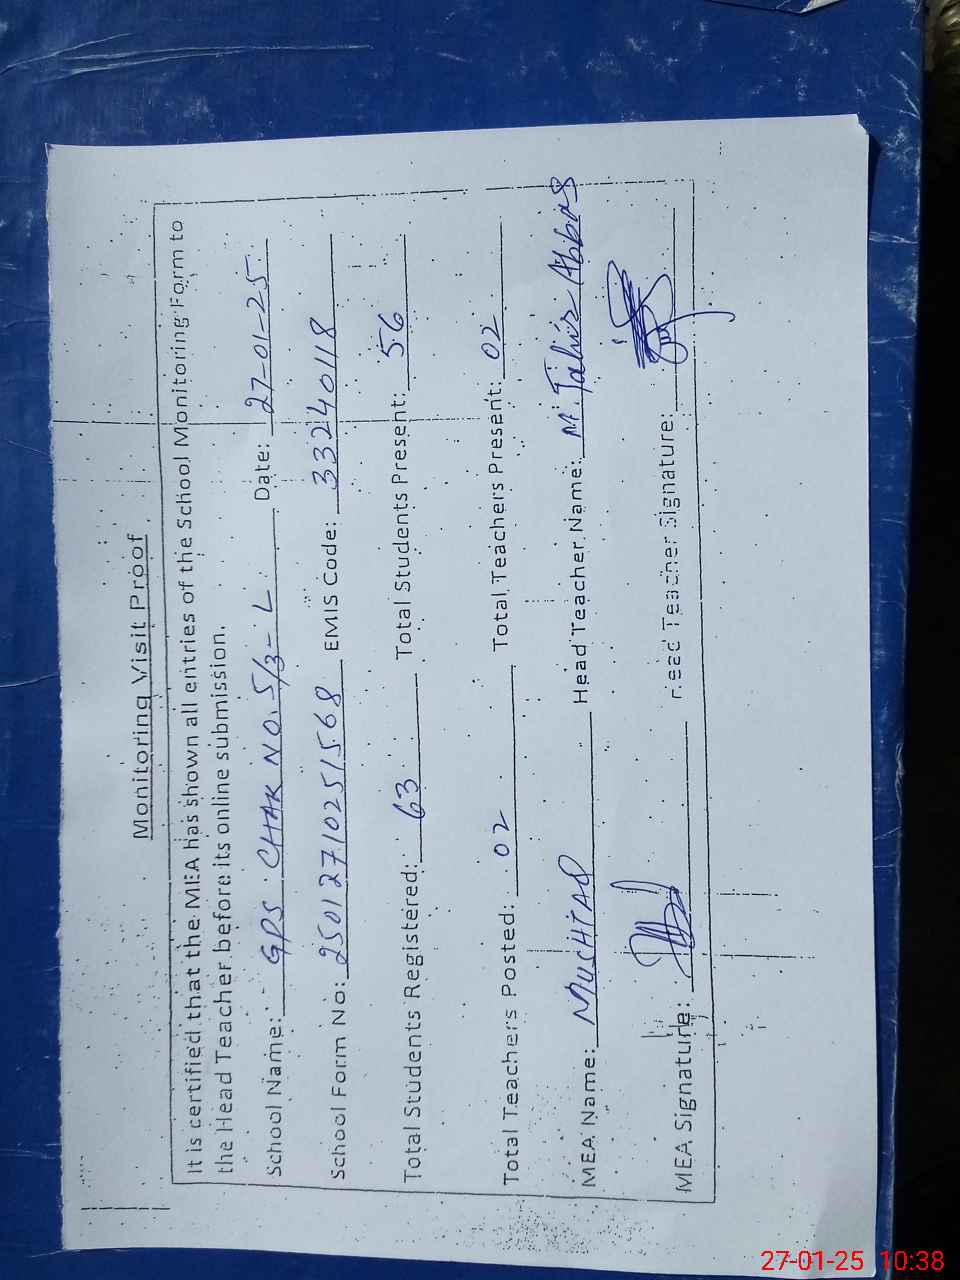 Monitoring Visit Proof
It is certified that the MEA has shown all entries of the School Monitoring Form to
the Head Teacher before its online submission.
School Name: GPS CHAK NO. 5/3-L Date: 27-01-25
School Form No: 25012710251568 EMIS Code: 33240118
Total Students Registered: 63 Total Students Present: 56
Total Teachers Posted: 02 Total Teachers Present: 02
MEA Name: MUSHTAQ Head Teacher Name: M. Tahir Abbas
MEA Signature: Head Teacher Signature:
27-01-25 10:38